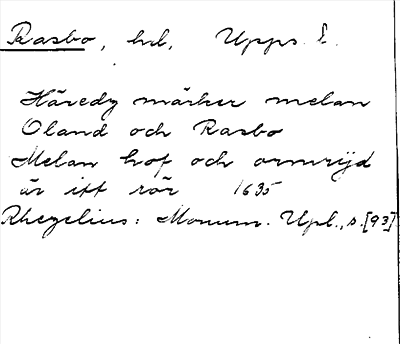 Rasbo, hd, Upps. l.
Häredz märker melan
Oland och Rasbo
Melan hof och ormryd
är itt rör 1635
Rhezelius: Monum. Upl., s. [93]